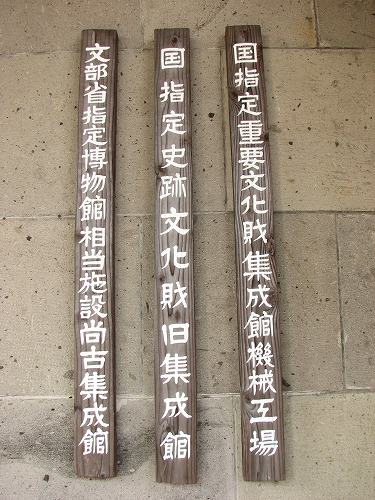 国指定重要文化財集成館機械工場
国指定史跡文化財旧集成館
文部省指定博物館相当施設尚古集成館